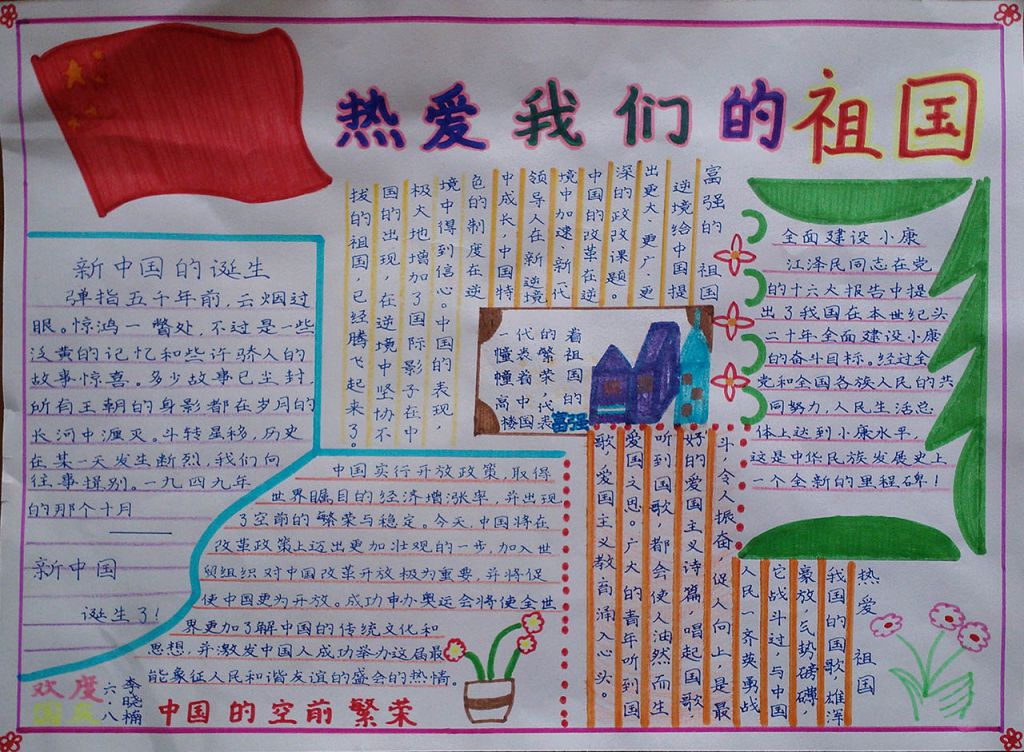 热爱我们的祖国
新中国的诞生
弹指五千年前，云烟过
眼。惊鸿一瞥处，不过是一些
泛黄的记忆和些许骄人的
故事惊喜。多少故事已尘封，
所有王朝的身影都在岁月的
长河中湮灭。斗转星移，历史
在某一天发生断烈，我们向
往事提别。一九四九年
的那个十月
新中国
诞生了！
富强的 祖国
逆境给中国提
出更大、更广、更
深的政改课题。
中国的改革在逆
境中加速，新一代
领导人在新逆境
中成长，中国特
色的制度在逆
境中得到信心。中国的表现，
极大地增加了国际影子在中
国的出现，在逆境中坚协不
拔的祖国，已经腾飞起来了。
着祖国的富强
的荣，代表
代表繁
一幢幢高楼
国
全面建设小康
江泽民同志在党
的十六大报告中提
出了我国在本世纪头
二十年全面建设小康
的奋斗目标。经过全
党和全国各族人民的共
同努力，人民生活总
体上达到小康水平，
这是中华民族发展史上
一个全新的里程碑！
中国实行开放政策，取得
世界瞩目的经济增涨率，并出现
了空前的繁荣与稳定。今天，中国将在
改革政策上迈出更加壮观的一步，加入世
贸组织对中国改革开放极为重要，并将促
使中国更为开放。成功申办奥运会将使全世
界更加了解中国的传统文化和
思想，并激发中国人成功举办这届最
能象征人民和谐友谊的盛会的热情。
中国的空前繁荣
热爱祖国
我国的国歌雄浑
豪放、气势磅礴，
它战斗过，与中国
人民一齐英勇战
斗，令人振奋，促人向上，是最
好的爱国主义诗篇，唱起国歌，
听到国歌，都会使人油然而生
爱国之思。广大的青年听到国
歌，爱国主义教育涌入心头。
欢度
国庆
六.八
李晓楠